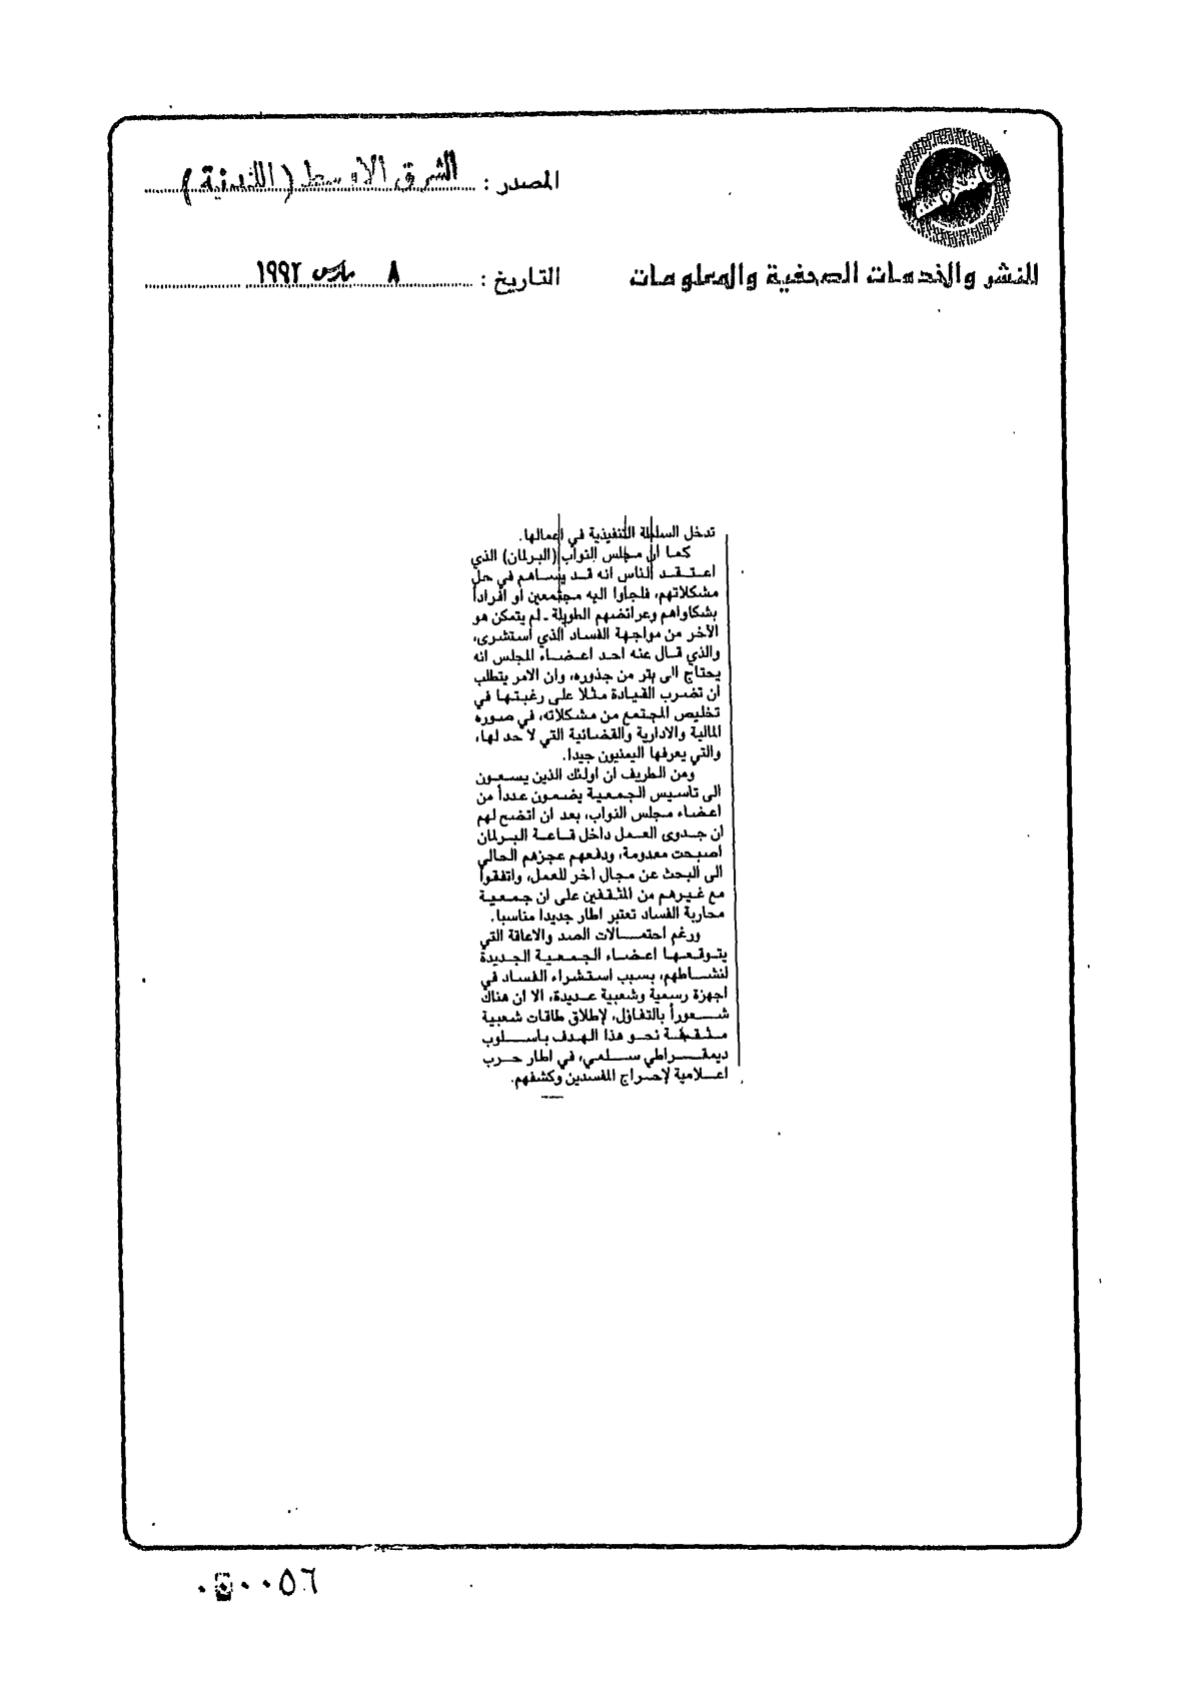 المصدر : الشرق الاوسط ( اللندنية )
للنشر والخدمات الصحفية والمعلومات
التاريخ : ٨ مارس ١٩٩٢
تدخل السلطة التنفيذية في اعمالها.
كما ان مجلس النواب (البرلمان) الذي
اعتقد الناس انه قد يساهم في حل
مشكلاتهم، فلجأوا اليه مجتمعين او افراداً
بشكاواهم وعرائضهم الطويلة ـ لم يتمكن هو
الآخر من مواجهة الفساد الذي استشرى،
والذي قال عنه احد اعضاء المجلس انه
يحتاج الى بتر من جذوره، وان الامر يتطلب
ان تضرب القيادة مثلا على رغبتها في
تخليص المجتمع من مشكلاته، في صوره
المالية والادارية والقضائية التي لا حد لها،
والتي يعرفها اليمنيون جيدا.
ومن الطريف ان اولئك الذين يسعون
الى تأسيس الجمعية يضمون عدداً من
اعضاء مجلس النواب، بعد ان اتضح لهم
ان جدوى العمل داخل قاعة البرلمان
اصبحت معدومة، ودفعهم عجزهم الحالي
الى البحث عن مجال آخر للعمل، واتفقوا
مع غيرهم من المثقفين على ان جمعية
محاربة الفساد تعتبر اطار جديدا مناسبا.
ورغم احتمالات الصد والاعاقة التي
يتوقعها اعضاء الجمعية الجديدة
لنشاطهم، بسبب استشراء الفساد في
اجهزة رسمية وشعبية عديدة، الا ان هناك
شعوراً بالتفاؤل، لإطلاق طاقات شعبية
مثقفة نحو هذا الهدف باسلوب
ديمقراطي سلمي، في اطار حرب
اعلامية لإحراج المفسدين وكشفهم.
٠٠٠٥٦